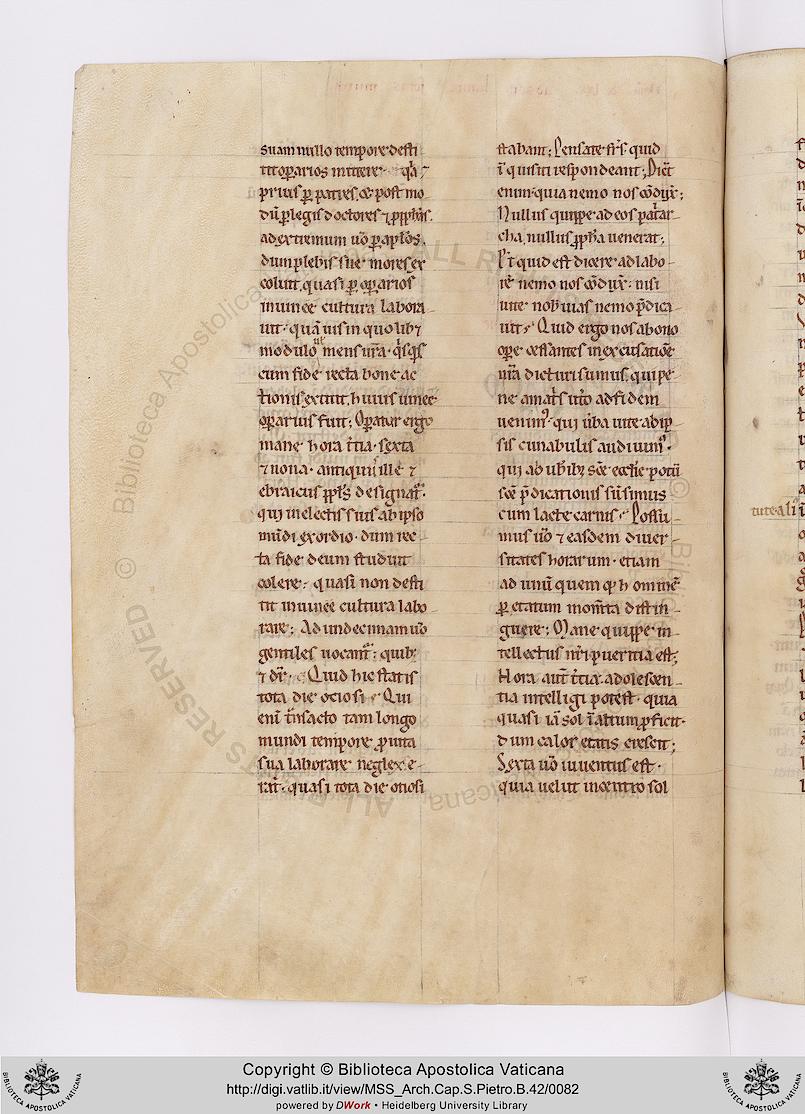 suam nullo tempore desti
tit oꝑarios mittere. q̇a ⁊
prius ꝑ patres. ⁊ post mo
dū ꝑ legis doctores ⁊ ꝓph̄as.
ad extremum ūo ꝑ aplōs.
dum plebis sue mores ex
coluit. quasi ꝑ oꝑarios
in uinee cultura labora
uit. quāuis in quolib⁊
modulo uel mensura. q̇sq̇s
cum fide recta bone ac
tionis extitit. huius uinee
oꝑarius fuit; Oꝑatur ergo
mane hora t̄tia. sexta
⁊ nona. antiquus ille ⁊
ebraicus ppl̄s designat᷑.
qui in electis suis ab ipso
mūdi exordio. dum rec
ta fide deum studuit
colere. quasi non desti
tit in uinee cultura labo
rare; Ad undecimam ūo
gentiles uocant᷑. quib;
⁊ dr̄. Quid hic statis
tota die ociosi. Qui
eni t̄nsacto tam longo
mundi tempore ꝓ uita
sua laborare neglexe
rāt. quasi tota die otiosi
stabant; Pensate fr̄s quid
īquisiti respondeant; Dicūt
enim. quia nemo nos cōdux̄;
Nullus quippe ad eos pat̄ar
cha. nullus ꝓph̄a uenerat;
Et quid est dicere ad labo
rē nemo nos cōdux̄. nisi
uite nob̄ uias nemo p̄dica
uit. Quid ergo nos a bono
oꝑe cessantes in excusatiōe
nr̄a dicturi sumus. qui pe
ne a matris utō ad fidem
uenim᷒. qui ūba uite ab ip
sis cunabulis audiuim᷒.
qui ab ub̄ib; sc̄e eccl̄ie potū
sc̄e p̄dicationis sūsimus
cum lacte carnis. Possu
mus ūo ⁊ easdem diuer
sitates horarum. etiam
ad unū quemq; hominē
ꝑ etatum mom̄ta distin
guere; Mane quippe in
tellectus nr̄i pueritia est;
Hora aut̄ t̄tia. adolescen
tia intelligi potest. quia
quasi iā sol ī altium ꝓficit.
dum calor etatis crescit;
Sexta ūo iuuentus est.
quia uelut in centro sol
Copyright © Biblioteca Apostolica Vaticana
http://digi.vatlib.it/view/MSS_Arch.Cap.S.Pietro.B.42/0082
powered by DWork • Heidelberg University Library